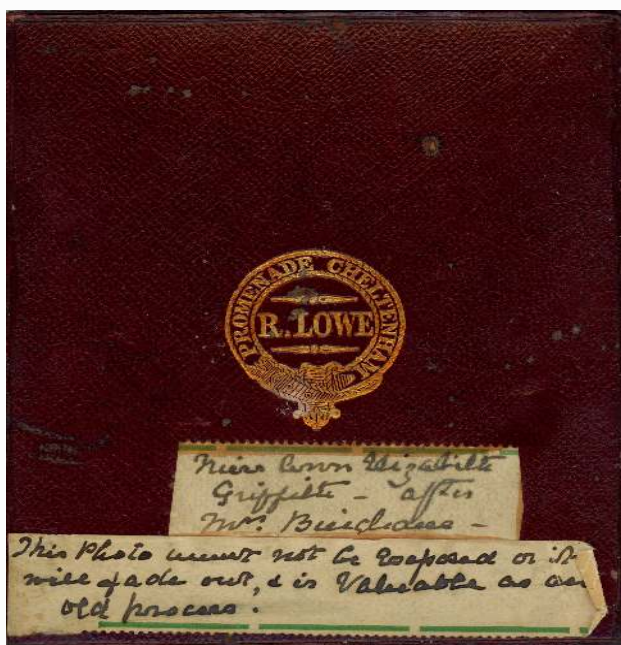 PROMENADE CHELTENHAM
R. LOWE
Elizabeth
Griffith - after
Mrs.
This Photo must not be Exposed or it
will fade out, & is Valuable as an
old process.